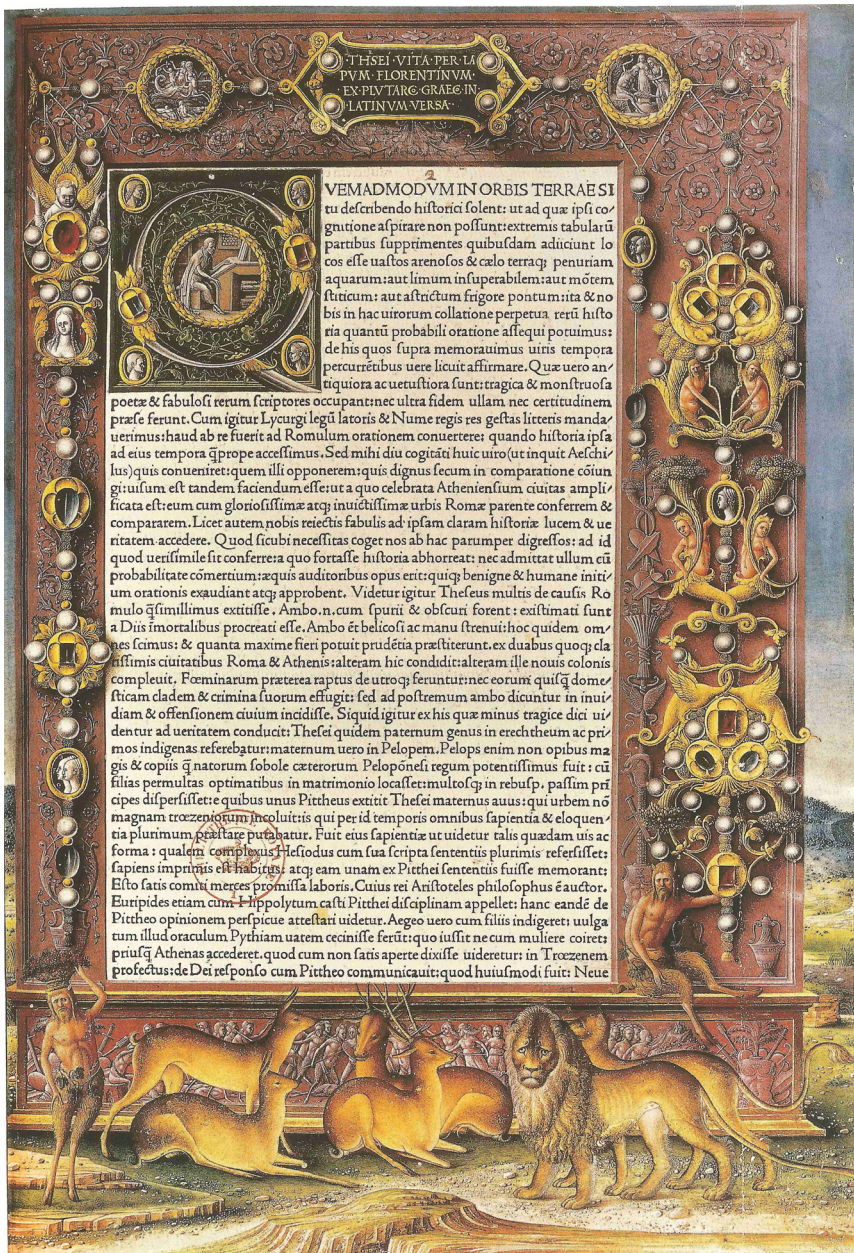 ·THSEI·VITA·PER·LA
PVM·FLORENTINVM·
EX·PLVTARC̄·GRAEC̄·IN·
·LATINVM·VERSA··
2
QVEMADMODVM IN ORBIS TERRAE SI
tu deſcribendo hiſtorici ſolent: ut ad quæ ipſi co⸗
gnitione aſpirare non poſſunt: extremis tabularū
partibus ſupprimentes quibuſdam adiiciunt lo
cos eſſe uaſtos arenoſos & cælo terraq; penuriam
aquarum: aut limum inſuperabilem: aut mōtem
ſtiticum: aut aſtrictum frigore pontum: ita & no
bis in hac uirorum collatione perpetua rerū hiſto
ria quantū probabili oratione aſſequi potuimus:
de his quos ſupra memorauimus uiris tempora
percurrētibus uere licuit affirmare. Quæ uero an⸗
tiquiora ac uetuſtiora ſunt: tragica & monſtruoſa
poetæ & fabuloſi rerum ſcriptores occupant: nec ultra fidem ullam nec certitudinem
præſe ferunt. Cum igitur Lycurgi legū latoris & Nume regis res geſtas litteris manda⸗
uerimus: haud ab re fuerit ad Romulum orationem conuertere: quando hiſtoria ipſa
ad eius tempora q̄prope acceſſimus. Sed mihi diu cogitāti huic uiro (ut inquit Aeſchi
lus) quis conueniret: quem illi opponerem: quis dignus ſecum in comparatione cōiun
gi: uiſum eſt tandem faciendum eſſe: ut a quo celebrata Athenienſium ciuitas ampli⸗
ficata eſt: eum cum glorioſiſſimæ atq; inuictiſſimæ urbis Romæ parente conferrem &
compararem. Licet autem nobis reiectis fabulis ad ipſam claram hiſtoriæ lucem & ue
ritatem accedere. Quod ſicubi neceſſitas coget nos ab hac parumper digreſſos: ad id
quod ueriſimile ſit conferre: a quo fortaſſe hiſtoria abhorreat: nec admittat ullum cū
probabilitate cōmertium: æquis auditoribus opus erit: quiq; benigne & humane initi⸗
um orationis exaudiant atq; approbent. Videtur igitur Theſeus multis de cauſis Ro
mulo q̄ſimillimus extitiſſe. Ambo .n. cum ſpurii & obſcuri forent: exiſtimati ſunt
a Diis īmortalibus procreati eſſe. Ambo ēt belicoſi ac manu ſtrenui: hoc quidem om⸗
nes ſcimus: & quanta maxime fieri potuit prudētia præſtiterunt. ex duabus quoq; cla
riſſimis ciuitatibus Roma & Athenis: alteram hic condidit: alteram ille nouis colonis
compleuit. Fœminarum præterea raptus de utroq; feruntur: nec eorum quiſq̄ dome⸗
ſticam cladem & crimina ſuorum effugit: ſed ad poſtremum ambo dicuntur in inui⸗
diam & offenſionem ciuium incidiſſe. Siquid igitur ex his quæ minus tragice dici ui⸗
dentur ad ueritatem conducit: Theſei quidem paternum genus in erechtheum ac pri⸗
mos indigenas referebatur: maternum uero in Pelopem. Pelops enim non opibus ma
gis & copiis q̄ natorum ſobole cæterorum Pelopōneſi regum potentiſſimus fuit: cū
filias permultas optimatibus in matrimonio locaſſet: multoſq; in rebuſp. paſſim prī
cipes diſperſiſſet: e quibus unus Pittheus extitit Theſei maternus auus: qui urbem nō
magnam trœzeniorum incoluit: is qui per id temporis omnibus ſapientia & eloquen⸗
tia plurimum præſtare putabatur. Fuit eius ſapientiæ ut uidetur talis quædam uis ac
forma: qualem complexus Heſiodus cum ſua ſcripta ſententiis plurimis referſiſſet:
ſapiens imprimis eſt habitus atq; eam unam ex Pitthei ſententiis fuiſſe memorant:
Eſto ſatis comiti merces promiſſa laboris. Cuius rei Ariſtoteles philoſophus ē auctor.
Euripides etiam cum Hippolytum caſti Pitthei diſciplinam appellet: hanc eandē de
Pittheo opinionem perſpicue atteſtari uidetur. Aegeo uero cum filiis indigeret: uulga
tum illud oraculum Pythiam uatem ceciniſſe ferūt: quo iuſſit ne cum muliere coiret:
priuſq̄ Athenas accederet. quod cum non ſatis aperte dixiſſe uideretur: in Trœzenem
profectus: de Dei reſponſo cum Pittheo communicauit: quod huiuſmodi fuit: Neue